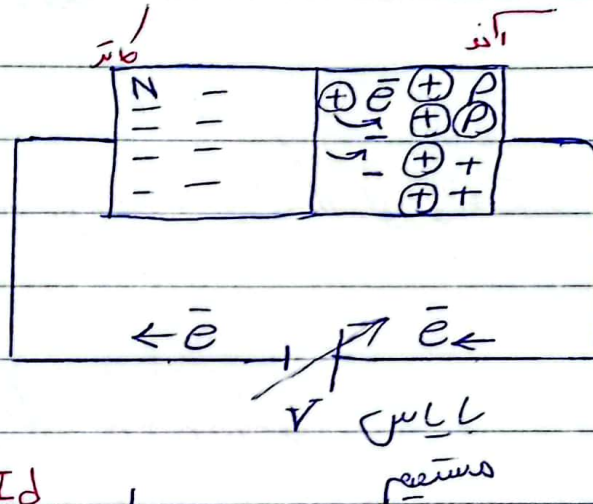 کاتد آند
N − − ⊕ ē ⊕ P
− − − ⊕ Ⓟ
− − − ⊕ +
− − ⊕ +
← ē ē ←
V بایاس
مستقیم
Id